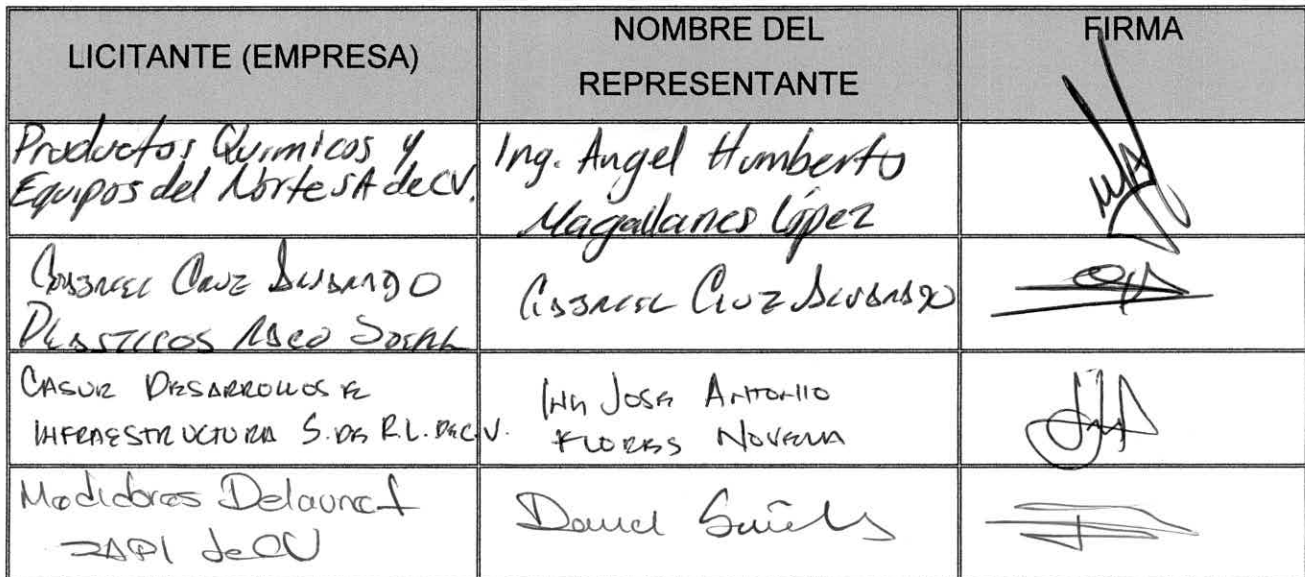 LICITANTE (EMPRESA)
NOMBRE DEL
REPRESENTANTE
FIRMA
Productos Químicos y
Equipos del Norte SA de CV.
Ing. Angel Humberto
Magallanes López
Gabriel Cruz Alvarado
Plasticos
Gabriel Cruz Alvarado
CASUR DESARROLLOS E
INFRAESTRUCTURA S. DE R.L. DE C.V.
ING JOSE ANTONIO
FLORES
Medidores Delaunet
SAPI de CV